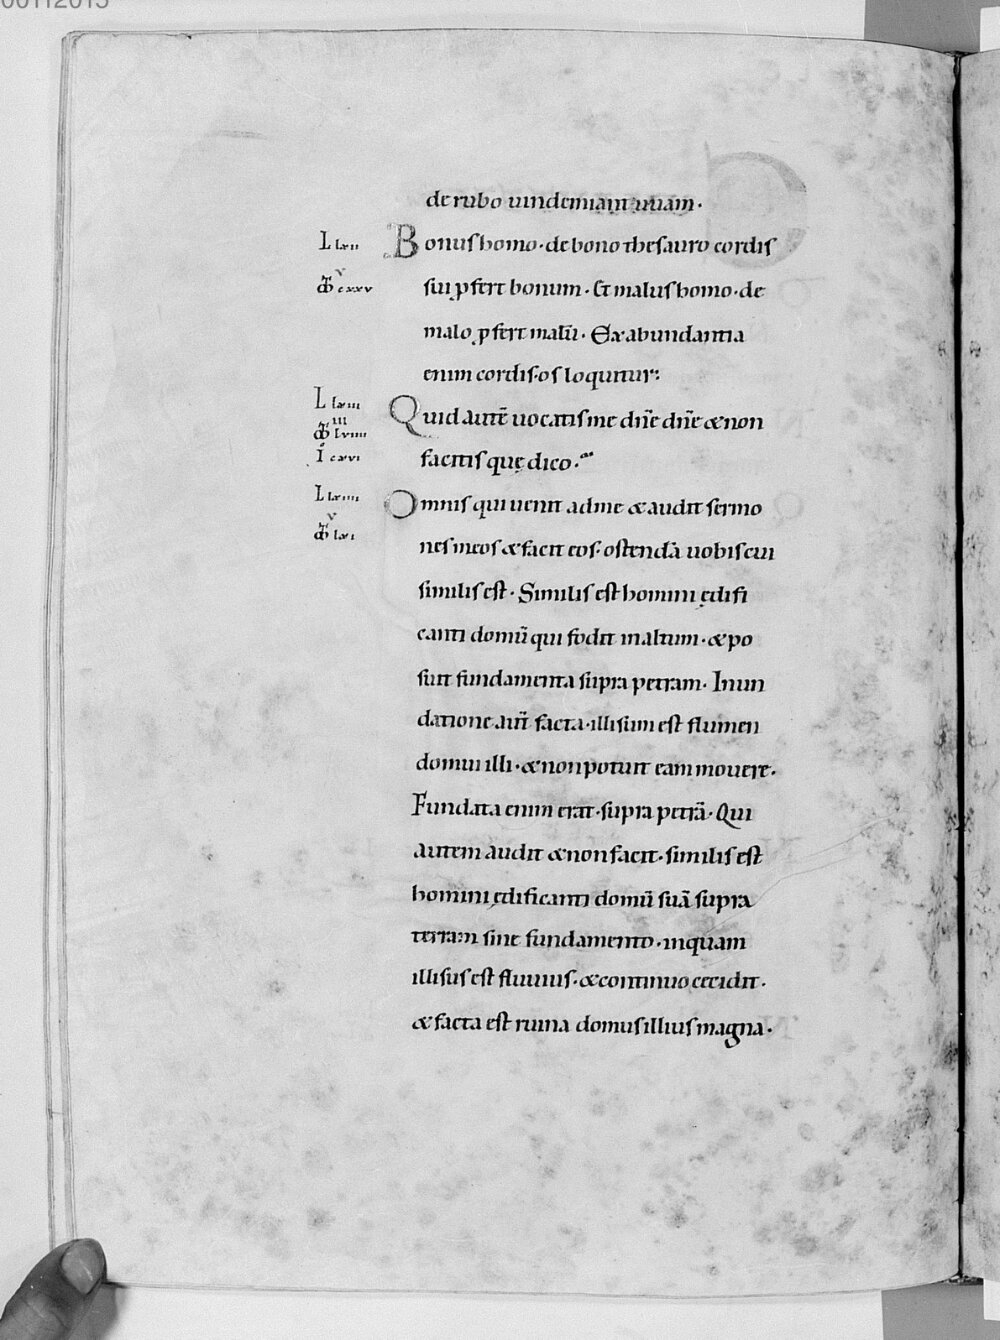 00112015
de rubo uindemiant uuam·
L lxii Bonus homo· de bono thesauro cordis
v
sui ꝓfert bonum· Et malus homo· de
malo ꝓfert malū· Ex abundantia
enim cordis· os loquitur:
L lxiii Quid autē uocatis me dn̄e dn̄e & non
iii
facitis quę dico·
L lxiiii Omnis qui uenit ad me & audit sermo
v
nes meos & facit eos· ostendā uobis cui
similis est· Similis est homini ędifi
canti domū qui fodit in altum· & po
suit fundamenta supra petram· Inun
datione aut̄ facta· illisum est flumen
domui illi· & non potuit eam mouere·
Fundata enim erat· supra petrā· Qui
autem audit & non facit· similis est
homini ędificanti domū suā supra
terram sine fundamento· inquam
illisus est fluuius· & continuo cecidit·
& facta est ruina domus illius magna·